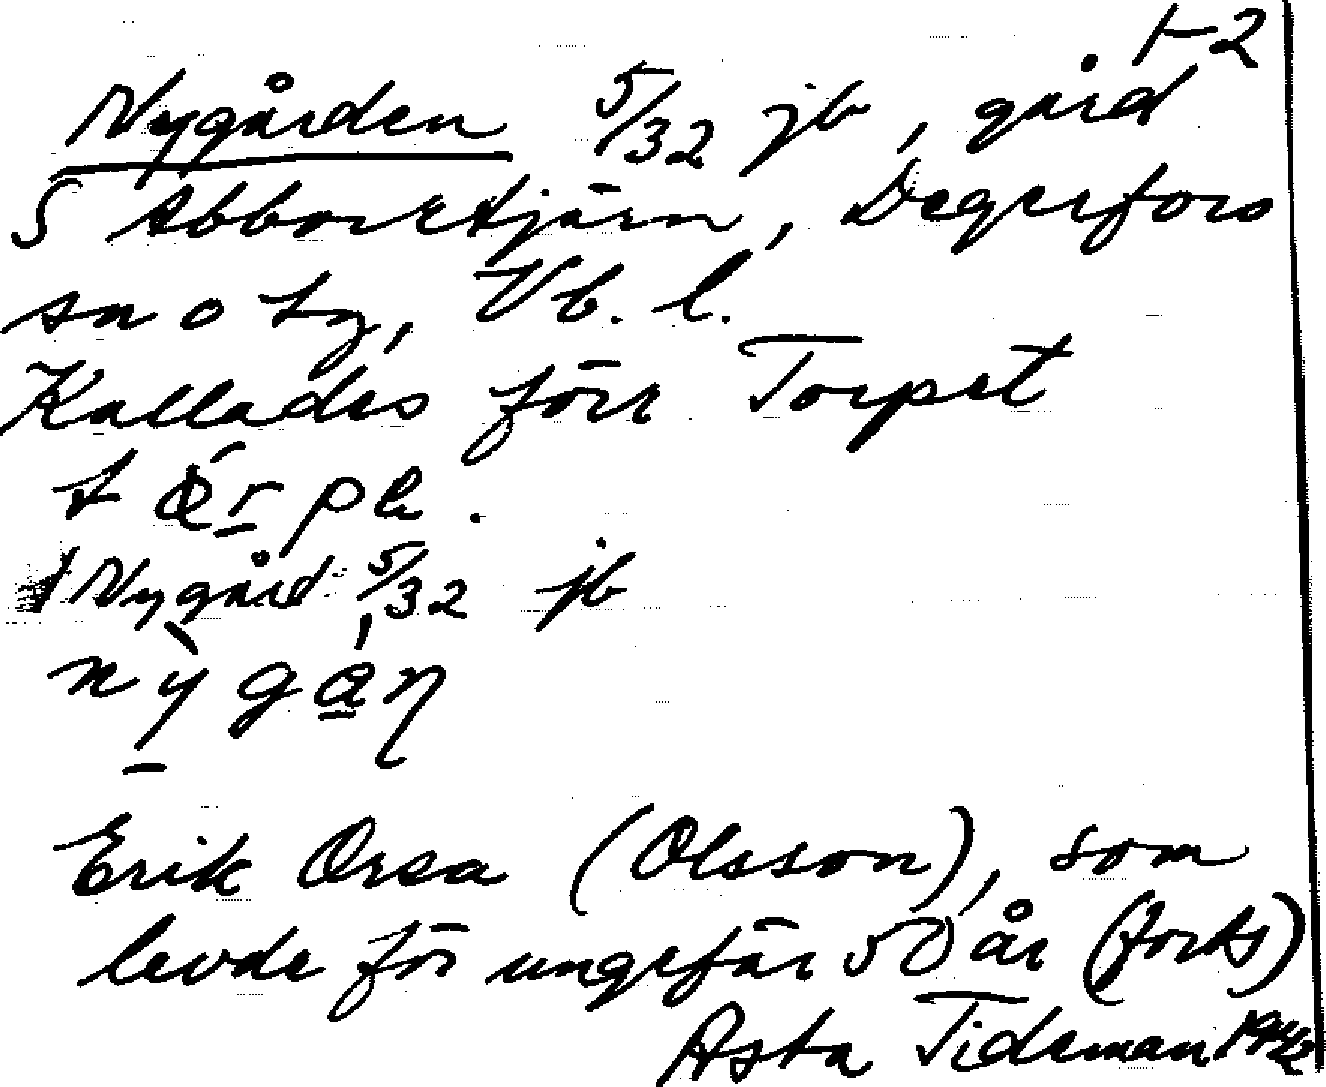 1-2
Nygården 5/32 jb, gård
S Abborrtjärn, Degerfors
sn o tg, Vb. l.
Kallades förr Torpet
Nygård 5/32 jb
Erik Orsa (Olsson), som
levde för ungefär 50 år (forts)
Asta Tideman 1942